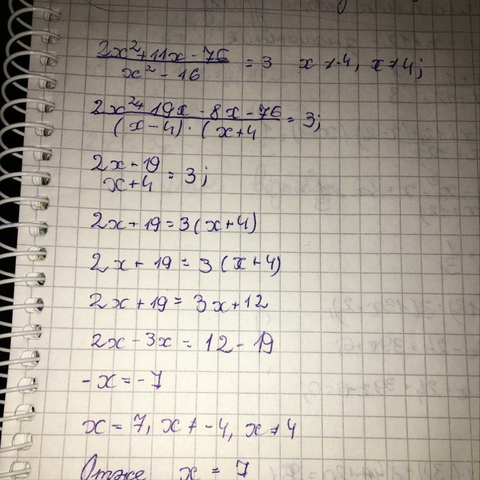 2x²+11x-76 / x²-16 = 3 x ≠ -4, x ≠ 4;
2x²+19x-8x-76 / (x-4)·(x+4 = 3;
2x+19 / x+4 = 3;
2x+19=3(x+4)
2x+19=3(x+4)
2x+19=3x+12
2x-3x=12-19
-x=-7
x=7, x≠-4, x≠4
Отже x=7